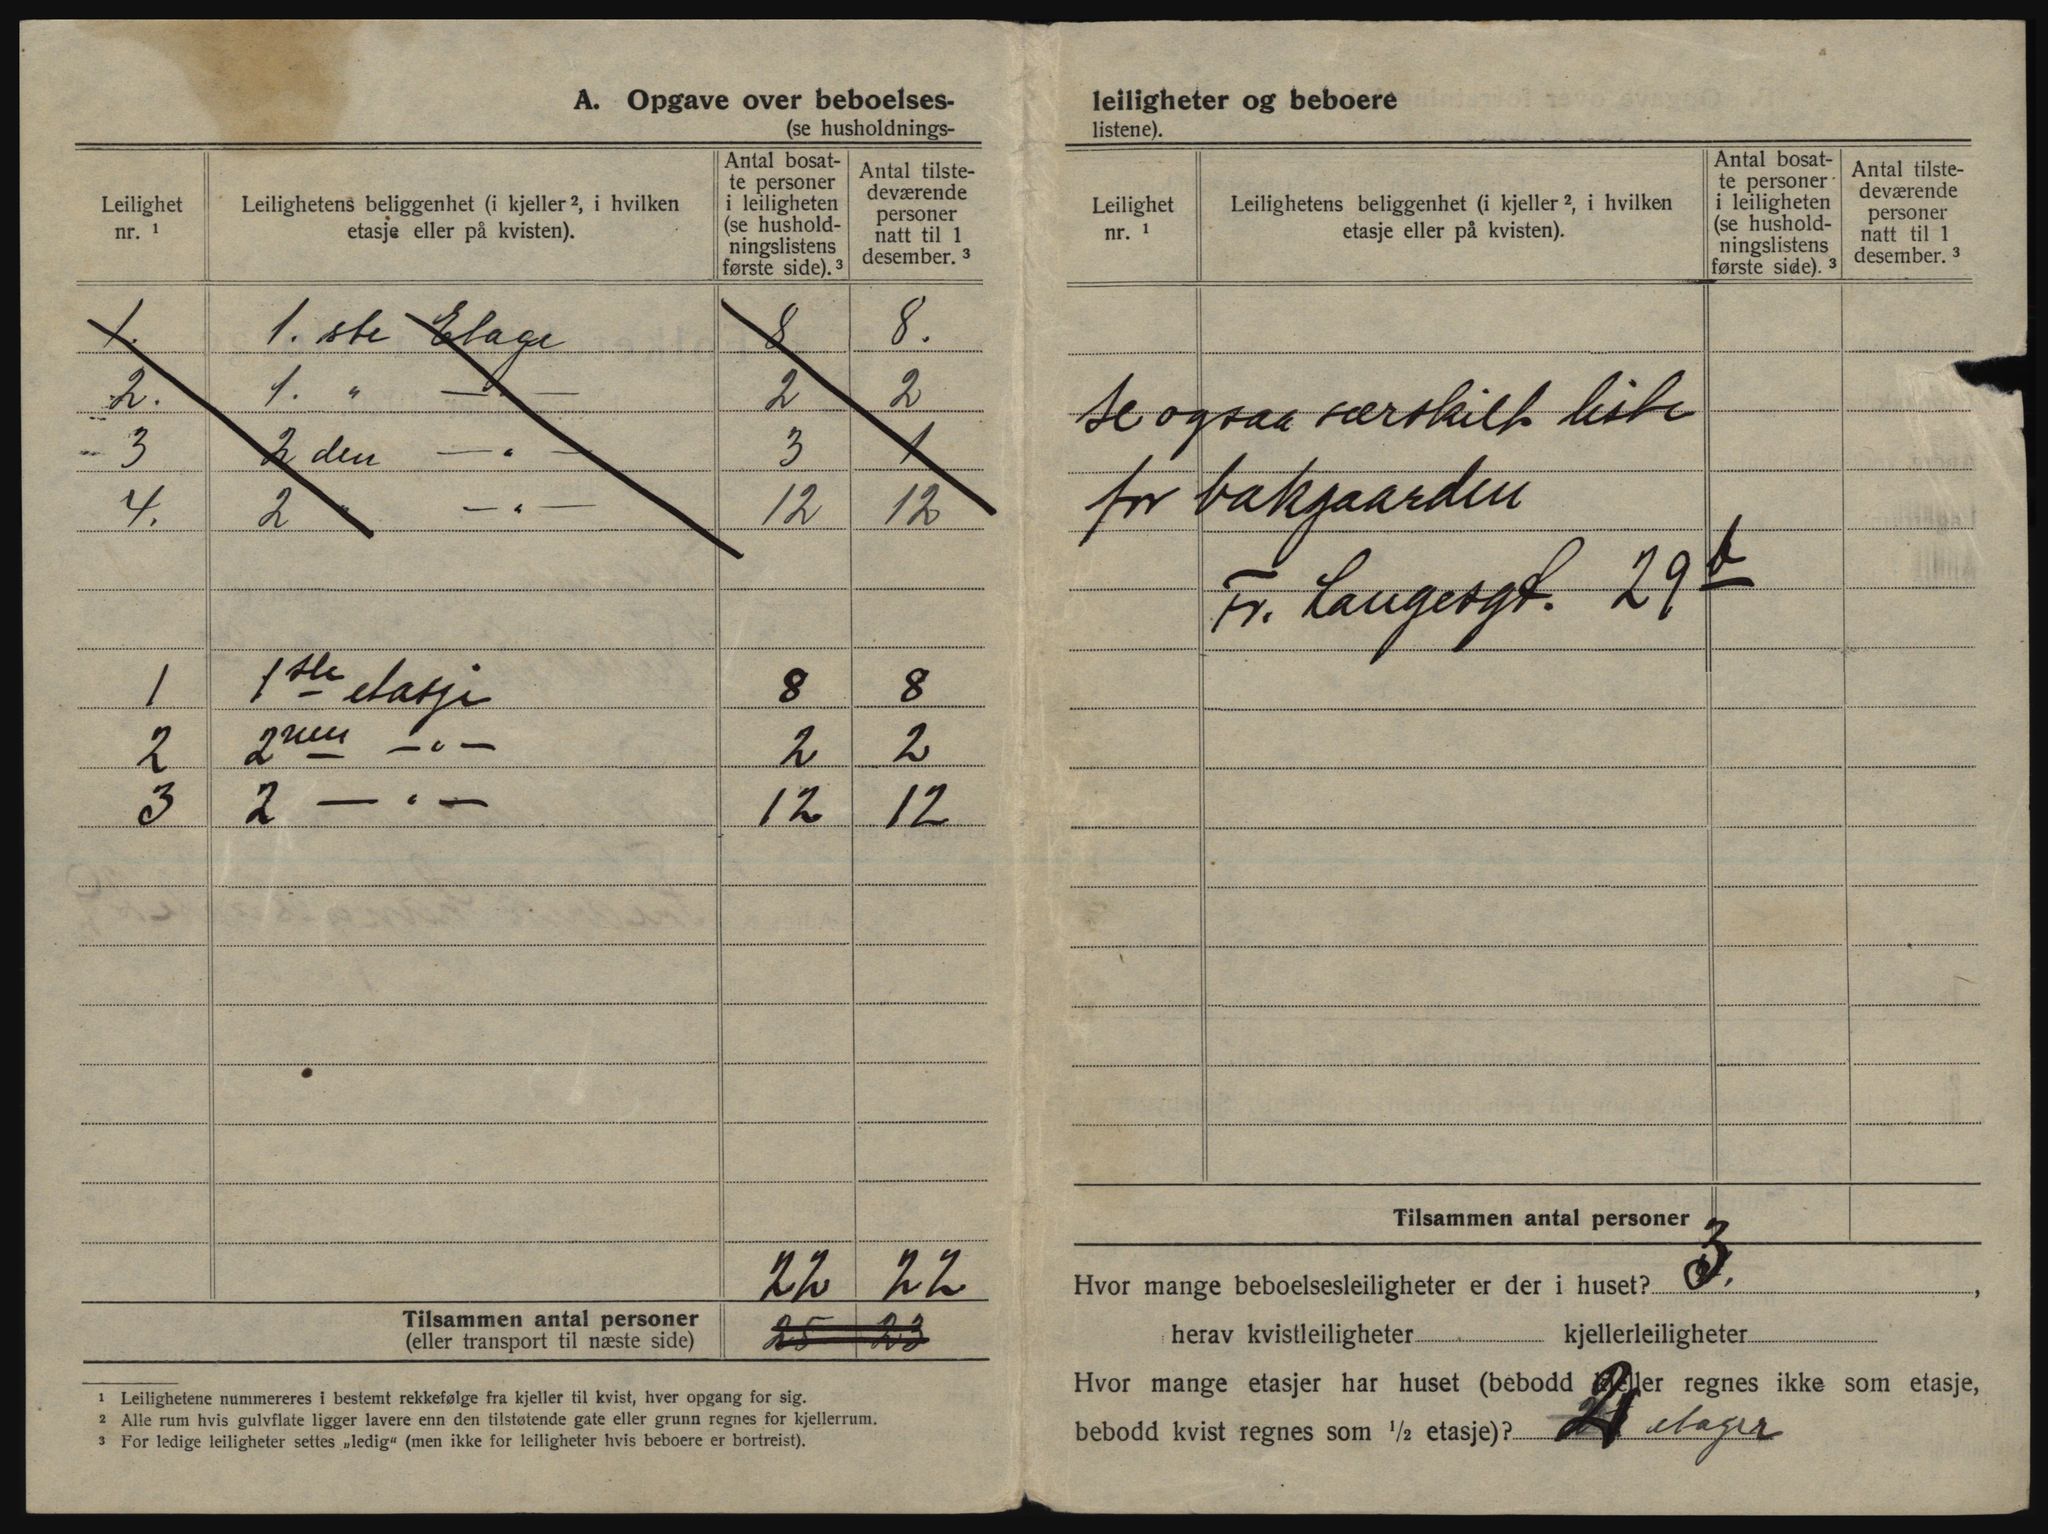 A. Opgave over beboelses-
(se husholdnings-
Leilighet nr. ¹
Leilighetens beliggenhet (i kjeller ², i hvilken etasje eller på kvisten).
Antal bosat-
te personer
i leiligheten
(se hushold-
ningslistens
første side). ³
Antal tilste-
deværende
personer
natt til 1
desember. ³
1. 1. ste Etage 8 8.
2. 1. " — " — 2 2
3 2 den — " — 3 1
4. 2 " — " — 12 12
1 1ste etasje 8 8
2 2nen — " — 2 2
3 2 — " — 12 12
22 22
Tilsammen antal personer 25 23
(eller transport til næste side)
¹ Leilighetene nummereres i bestemt rekkefølge fra kjeller til kvist, hver opgang for sig.
² Alle rum hvis gulvflate ligger lavere enn den tilstøtende gate eller grunn regnes for kjellerrum.
³ For ledige leiligheter settes „ledig“ (men ikke for leiligheter hvis beboere er bortreist).
leiligheter og beboere
listene).
Leilighet nr. ¹
Leilighetens beliggenhet (i kjeller ², i hvilken etasje eller på kvisten).
Antal bosat-
te personer
i leiligheten
(se hushold-
ningslistens
første side). ³
Antal tilste-
deværende
personer
natt til 1
desember. ³
se ogsaa særskilt liste
for bakgaarden
Fr. Langesgt. 29b
Tilsammen antal personer
Hvor mange beboelsesleiligheter er der i huset? 3.,
herav kvistleiligheter kjellerleiligheter
Hvor mange etasjer har huset (bebodd kjeller regnes ikke som etasje,
bebodd kvist regnes som ½ etasje)? 2 etager